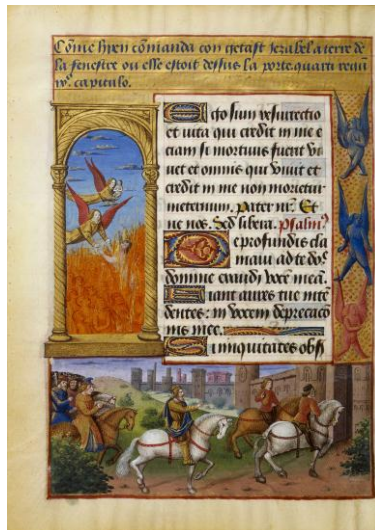 Cõme hyeu cõmanda con getast Jezabel a terre de
la fenestre ou elle estoit dessus la porte. quarti regũ
ixº. capitulo.
Ego sum resurrectio
et vita qui credit in me e
ciam si mortuus fuerit vi
uet et omnis qui viuit et
credit in me non morietur
ineternum. Pater nr̃. Et
ne nos. Sed libera. Psalmꝰ
De profundis cla
maui ad te dñe
domine exaudi vocẽ meã.
Fiant aures tue intẽ
dentes: in vocem deprecacõ
nis mee.
Si iniquitates obs